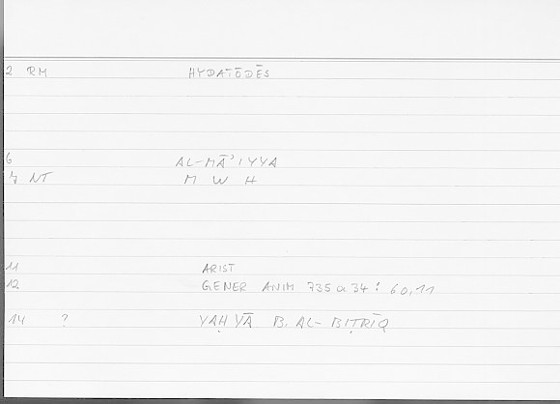 2 RM HYDATŌDĒS
6 AL-MĀʾIYYA
7 NT M W H
11 ARIST
12 GENER ANIM 735 a 34 : 60,11
14 ? YAḤYĀ B. AL-BIṬRĪQ